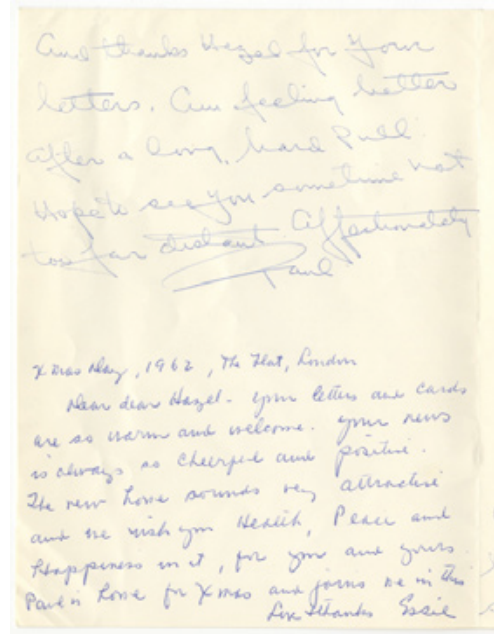 And thanks Hazel for your
letters. Am feeling better
after a long, hard Pull
Hope to see you sometime not
too far distant. Affectionately
Paul
Xmas Day, 1962, The Flat, London
Dear dear Hazel - your letters and cards
are so warm and welcome. your news
is always so cheerful and positive.
The new home sounds very attractive
and we wish you Health, Peace and
Happiness in it, for you and yours.
Paul is home for Xmas and joins me in this
Love thanks Essie